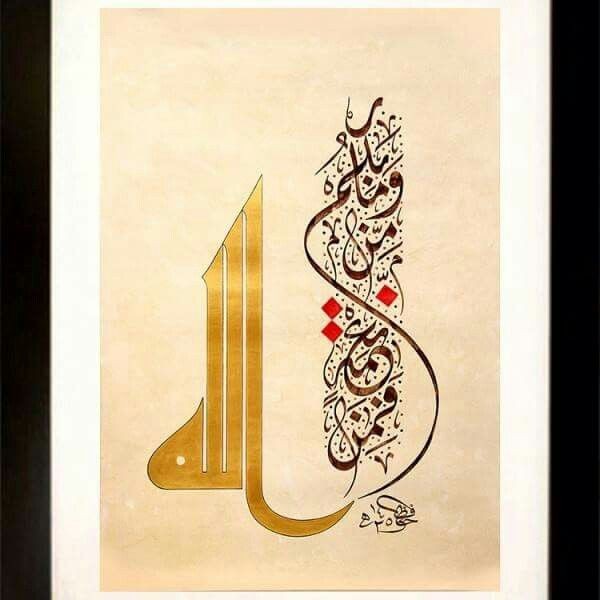 وما بكم
من
نعمة
فمن
الله